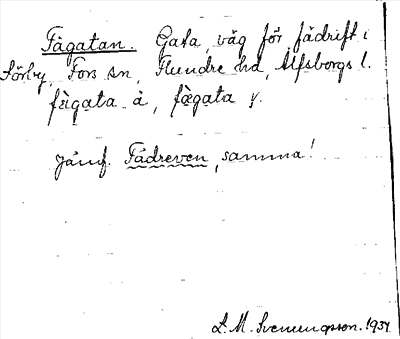 Fägatan. Gata, väg för fädrift i
Sörby, Fors sn, Flundre hd, Älfsborgs l.
fägata å, fägata y.
Jämf. Fädreven, samma!
L. M. Svenungsson. 1937